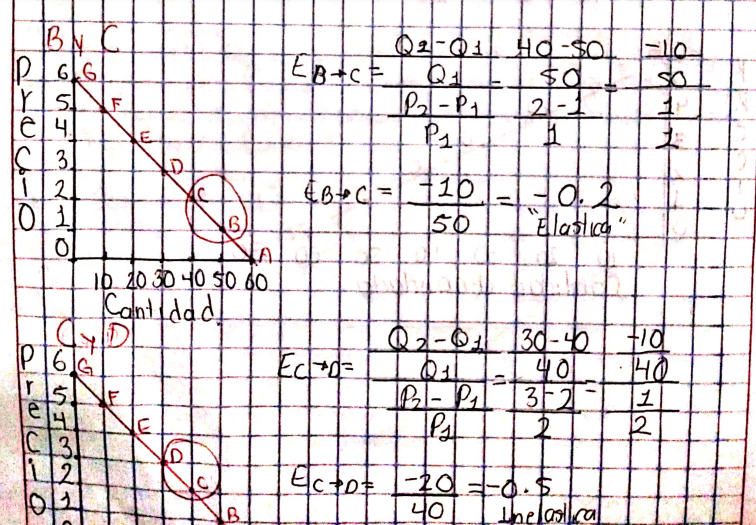 B y C
Precio
6 G
5 F
4 E
3 D
2 C
1 B
0 A
10 20 30 40 50 60
Cantidad
E B→C = Q2-Q1 / Q1 / P2-P1 / P1 = 40-50 / 50 / 2-1 / 1 = -10 / 50 / 1 / 1
E B→C = -10 / 50 = -0.2
"Elastica"
C y D
Precio
6 G
5 F
4 E
3 D
2 C
1 B
E C→D = Q2-Q1 / Q1 / P2-P1 / P1 = 30-40 / 40 / 3-2 / 2 = -10 / 40 / 1 / 2
E C→D = -20 / 40 = -0.5
Inelastica